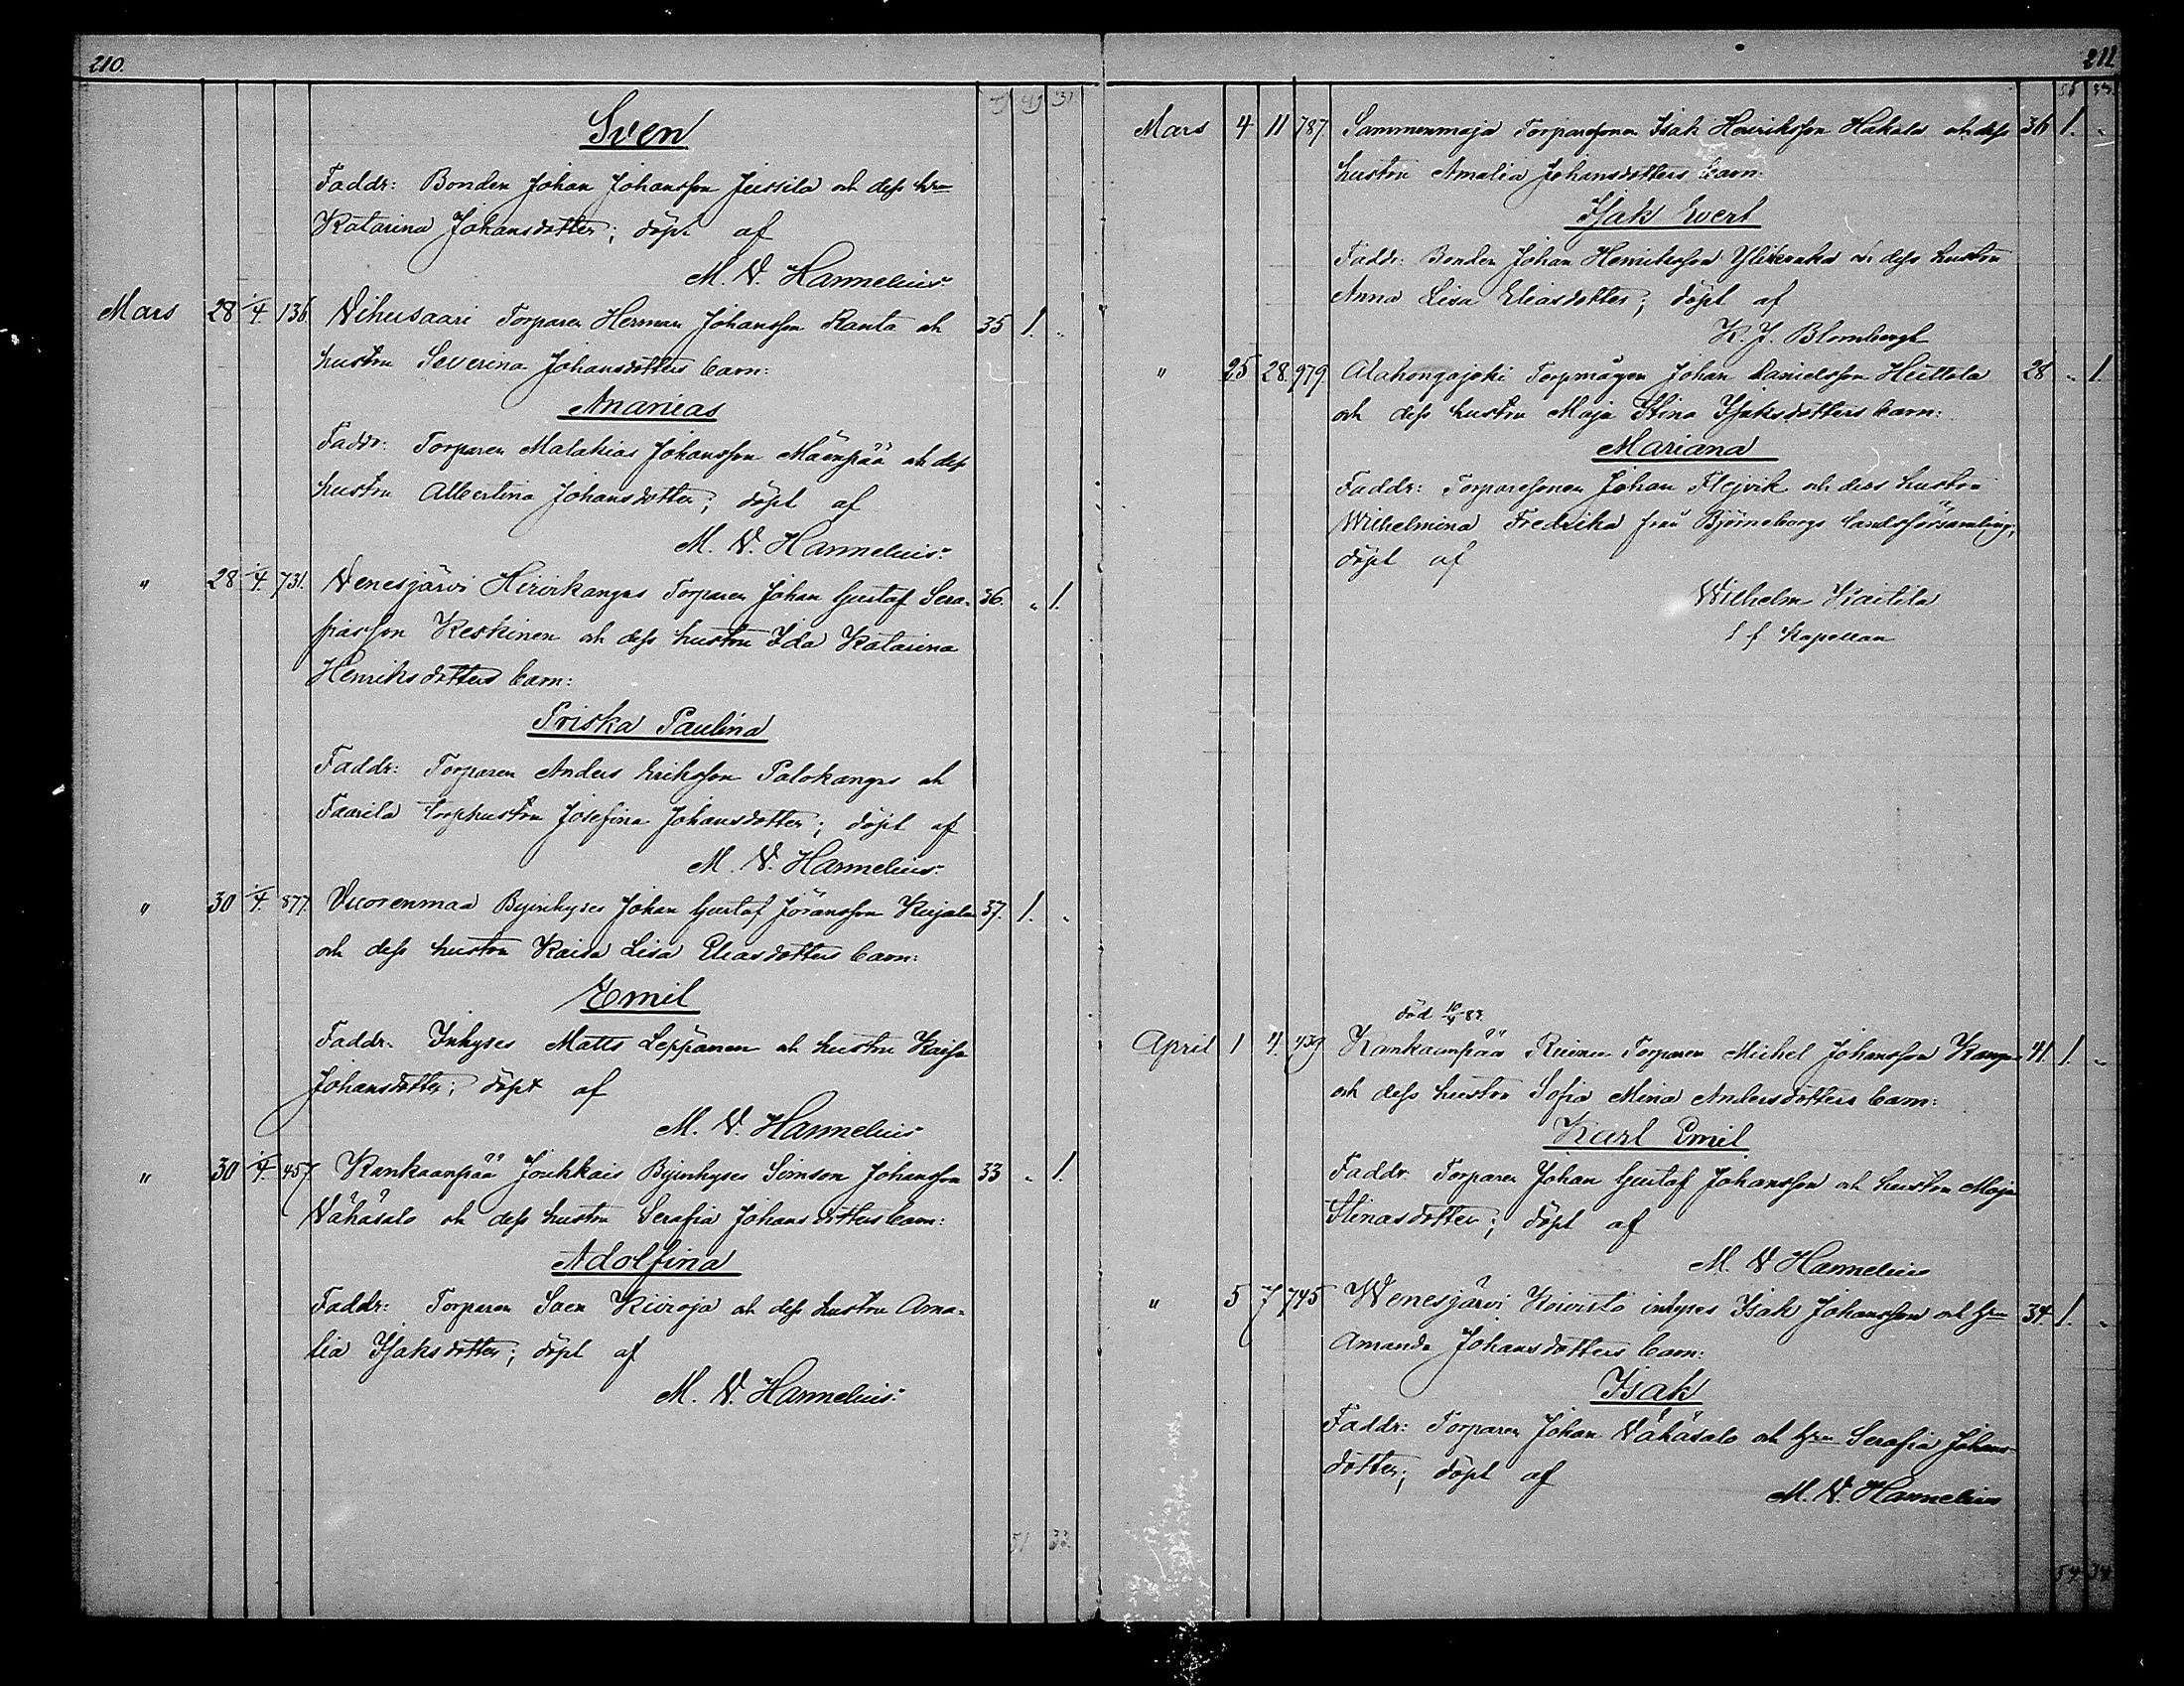 210.
49 31.
Sven
Faddr: Bonden Johan Johansson Jussila och dess hru
Katarina Johansdotter; döpt af
M. V. Hannelius.
Mars 28 1/4. 136. Vihusaari Torparen Herman Johansson Ranta och 35 1. "
hustru Severina Johansdotters barn:
Ananias
Faddr: Torparen Malakias Johansson Mäenpää och dess
hustru Albertina Johansdotter; döpt af
M. V. Hannelius.
" 28 1/4. 731. Venesjärvi Hirvikangas Torparen Johan Gustaf Sera- 36. " 1.
fiasson Keskinen och dess hustru Ida Katarina
Henriksdotters barn:
Priska Paulina
Faddr: Torparen Anders Eriksson Palokangas och
Taarila torphustru Josefina Johansdotter; döpt af
M. V. Hannelius.
" 30 1/4. 877. Vuorenmaa Byinhyses Johan Gustaf Göransson Kujala 37. 1. "
och dess hustru Kaisa Lisa Eliasdotters barn:
Emil
Faddr. Inhyses Matts Leppänen och hustru Kaisa
Johansdotter; döpt af
M. V. Hannelius
" 30 1/4. 457 Kankaanpää Jouhkais Byinhyses Simson Johansson 33 " 1.
Vähäsalo och dess hustru Serafia Johansdotters barn:
Adolfina
Faddr: Torparen Saen Kiiroja och dess hustru Ama-
lia Isaksdotter; döpt af
M. V. Hannelius.
51 33.
211
51 33.
Mars 4 11 787 Sammenmaja Torparesonen Isak Henriksson Hakala och dess 36 1. "
hustru Amalia Johansdotters barn:
Isak Evert
Faddr: Bonden Johan Henriksson och dess hustru
Anna Lisa Eliasdotter; döpt af
K. J. Blombergh
" 25 28 979 Alahongajoki Torpmågen Johan Danielsson Huttola 28 " 1
och dess hustru Maja Stina Isaksdotters barn:
Mariana
Faddr: Torparesonen Johan Flejvik och dess hustru
Wilhelmina Fredrika från Björneborgs landsförsamling;
döpt af
Wilhelm Kailila
Kapellan
död 10/4 83.
April 1 4. Kankaanpää Torparen Michel Johansson 41. 1. "
och dess hustru Sofia Mina Andersdotters barn:
Karl Emil
Faddr. Torparen Johan Gustaf Johansson och hustru Maja
Stinasdotter; döpt af
M. V. Hannelius
" 5 7 745 Wenesjärvi Koivisto inhyses Isak Johansson och hru 34 1. "
Amanda Johansdotters barn:
Isak
Faddr: Torparen Johan Vähäsalo och hru Serafia Johans-
dotter; döpt af
M. V. Hannelius
54 34